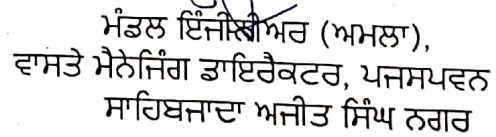 ਮੰਡਲ ਇੰਜੀਨੀਅਰ (ਅਮਲਾ),
ਵਾਸਤੇ ਮੈਨੇਜਿੰਗ ਡਾਇਰੈਕਟਰ, ਪਜਸਪਵਨ
ਸਾਹਿਬਜਾਦਾ ਅਜੀਤ ਸਿੰਘ ਨਗਰ